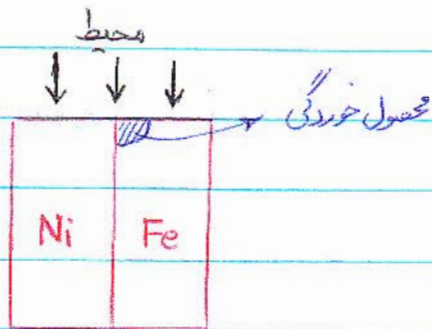 محیط
محصول خوردگی
Ni Fe